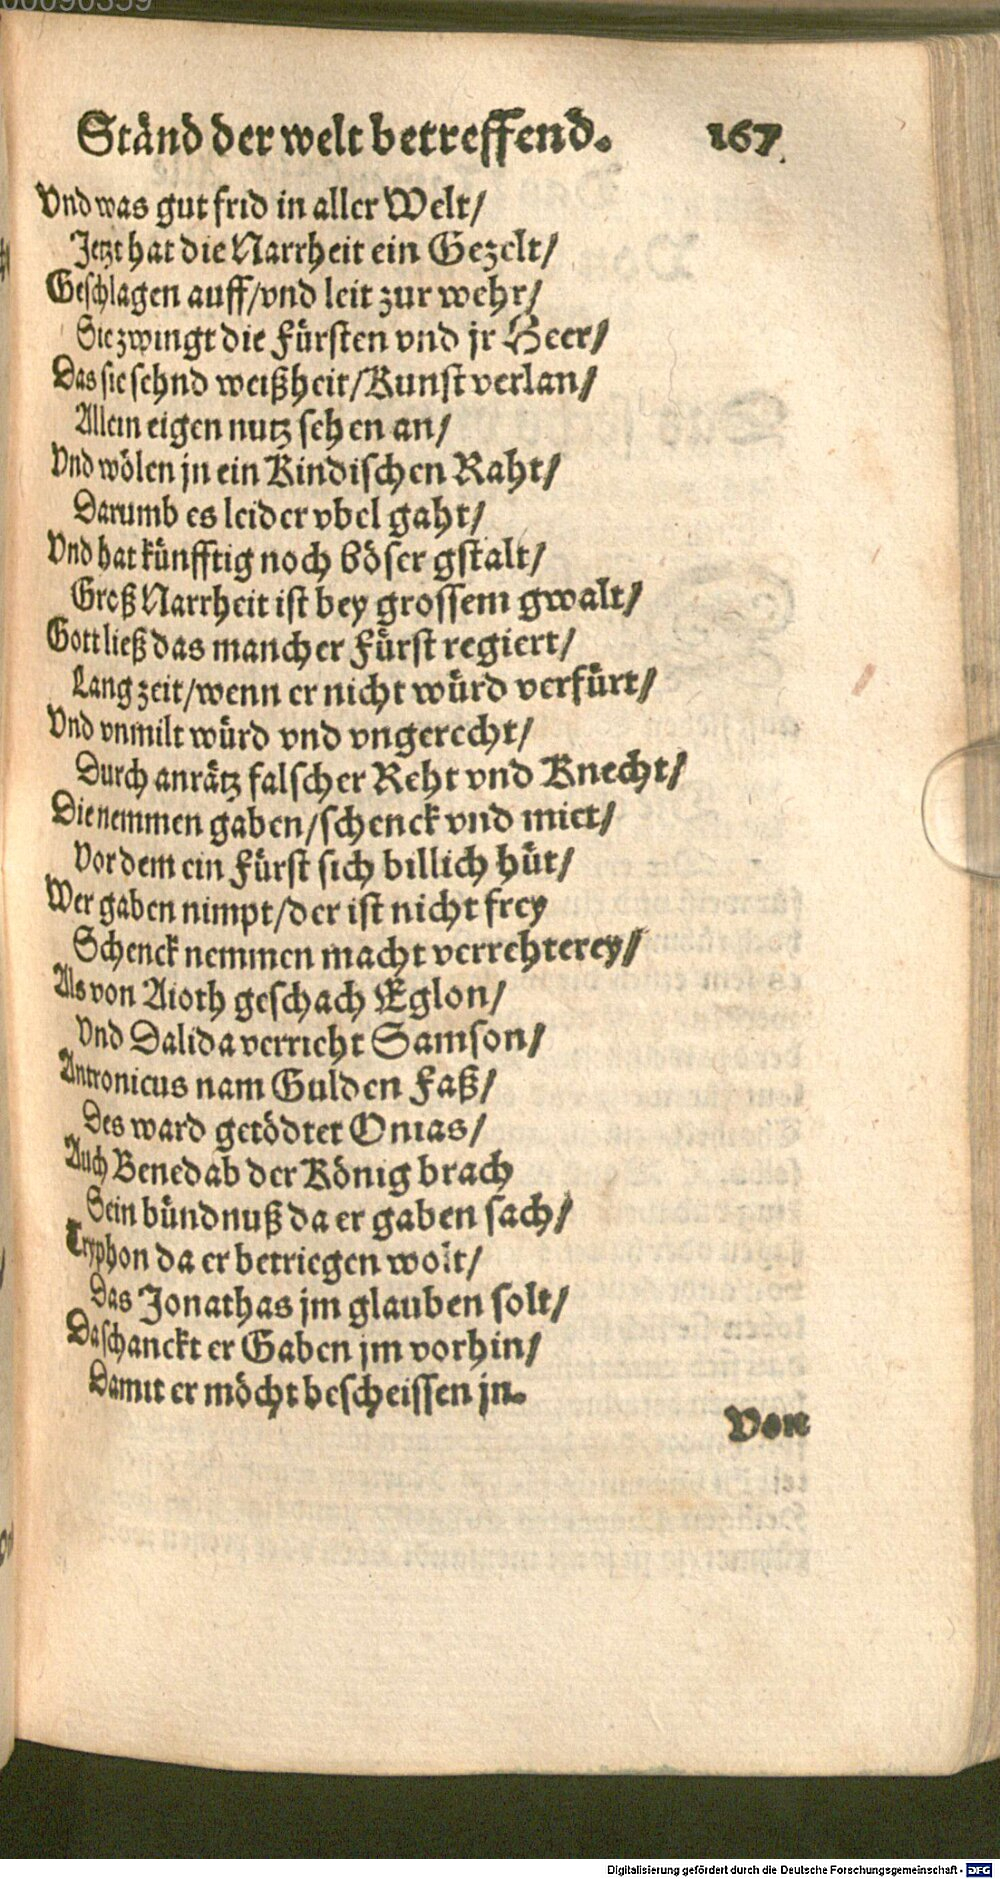 Ständ der welt betreffend. 167.
Vnd was gut frid in aller Welt/
Jetzt hat die Narrheit ein Gezelt/
Geschlagen auff/vnd leit zur wehr/
Sie zwingt die Fürsten vnd jr Heer/
Das sie sehnd weißheit/Kunst verlan/
Allein eigen nutz sehen an/
Vnd wölen jn ein Kindischen Raht/
Darumb es leider vbel gaht/
Vnd hat künfftig noch böser gstalt/
Groß Narrheit ist bey grossem gwalt/
Gott ließ das mancher Fürst regiert/
Lang zeit/wenn er nicht würd verfürt/
Vnd vnmilt würd vnd vngerecht/
Durch anrätz falscher Reht vnd Knecht/
Die nemmen gaben/schenck vnd miet/
Vor dem ein Fürst sich billich hüt/
Wer gaben nimpt/der ist nicht frey
Schenck nemmen macht verrehterey/
Als von Aioth geschach Eglon/
Vnd Dalida verricht Samson/
Antronicus nam Gulden Faß/
Des ward getödtet Onias/
Auch Benedab der König brach
Sein bündnuß da er gaben sach/
Tryphon da er betriegen wolt/
Das Jonathas jm glauben solt/
Da schanckt er Gaben jm vorhin/
Damit er möcht bescheissen jn.
Von
Digitalisierung gefördert durch die Deutsche Forschungsgemeinschaft - DFG